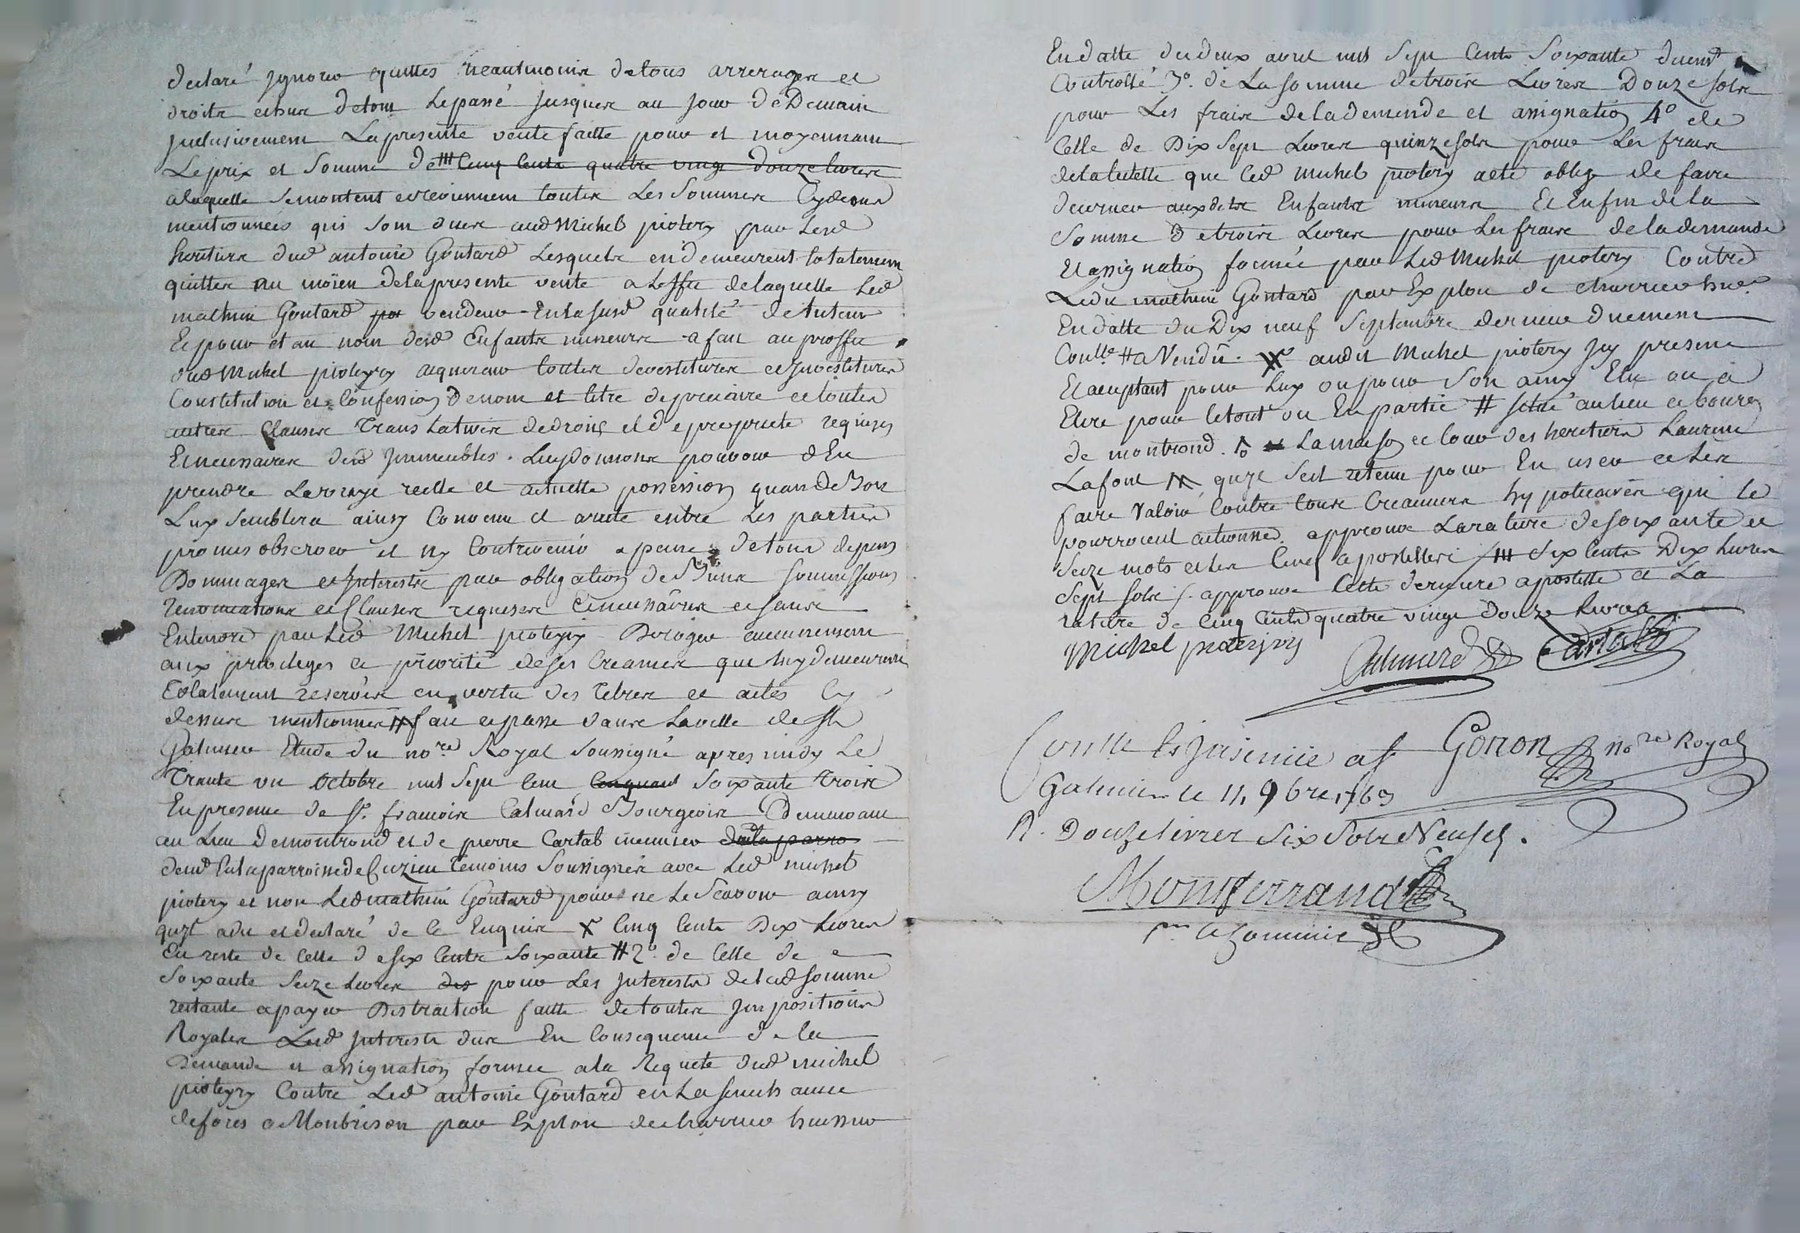 declaré ignorer quittes neantmoins de tous arrerages et
droits echus de tout le passé jusques au jour de Demain
inclusivement La presente vente faitte pour et moyennant
Le prix et somme de cinq cents quatre vingt douze livres
a laquelle se montent et reviennent toutes Les sommes cydessus
mentionnées qui sont dues aud Michel piotery par lesd
heritiers dud antoine Goutard Lesquels en demeurent totalement
quittes au moien de la presente vente a Leffet de laquelle Led
mathieu Goutard vendeur En lasusd qualité de tuteur
Et pour et au nom desd Enfants mineurs a fait au proffit
dud Michel pioteyry acquereur toutes devestitures et investitures
Constitution et Confession de nom et titre de precaire et toutes
autres Clauses Translatives de droits et de propriete requises
Et necessaires desd immeubles. Luy donnons pouvoir d'En
prendre La vraye reelle et actuelle possession quand Bon
Luy semblera ainsy Convenu et arreté entre Les parties
promis observer et ny Contrevenir a peine de tous depens
Dommages et Interests par obligation de Biens soumissions
renonciations et Clauses requises et necessaires et sans
Entendre par Led Michel pioteyry Deroger aucunement
aux privileges et priorité de ses Creances qui luy demeurent
Totalement reservées en vertu des Titres et actes cy
dessus mentionnés # fait et passé dans La ville de St
Galmier Etude du no.re Royal soussigné apres midy Le
Trante un octobre mil sept cent cinquante soixante trois
En presence de Sr. francois Calmard Bourgeois Demeurant
au Lieu de montrond et de pierre Cartal menuisier de la parro
demt En la parroisse de Cuzieu temoins soussignés avec Led michel
piotery et non Led mathieu Goutard pour ne Le scavoir ainsy
quil a dit et declaré de ce Enquis X Cinq cents Dix Livres
En reste de Celle de six Cents soixante # 2o. de Celle de
soixante seize Livres des pour Les Interests de lad somme
restante a payer Distraction faitte de toutes Impositions
Royales Lesd Interests dues En Consequence de la
Demande et assignation formée a la Requete dud michel
pioteyry Contre Led antoine Goutard en La senechaussée
de forés a Montbrison par Exploit de charvier huissier
En datte du deux avril mil sept Cents soixante duemt
Controllé 3o. de La somme de trois Livres Douze sols
pour Les frais de la demende et assignation 4o de
Celle de Dix sept Livres quinze sols pour Les frais
de la tutelle que Led michel piotery a eté obligé de faire
decerner auxdits Enfants mineurs Et Enfin de la
somme de trois Livres pour Les frais de la demande
Et assignation formée par Led Michel piotery Contre
Ledit mathieu Goutard par Exploit de charvier huer.
En datte du Dix neuf septembre dernier duement
Conlle. # a Vendu. X audit Michel piotery icy present
Et acceptant pour Luy ou pour son amy Elu ou a
Elire pour le tout ou En partie # situé au lieu et bourg
de montrond. La maison et cour des heritiers Laurent
Lafont # qu'il s'est retenu pour En user et Les
faire valoir contre tous Creanciers hypotecaires qui le
pourroient actionner. approuvé La rature de soixante et
seize mots et les cinq apostilles # six cents Dix Livres
sept sols approuvé Cette derniere apostille et La
rature de Cinq Cents quatre vingt douze Livres
Michel pioteyry
Calmard Cartal
Gonon no.re Royal
Conllé et Insinué a St
Galmier le 11. 9bre 1763
R. Douze livres six sols Neuf d.
Montferrand